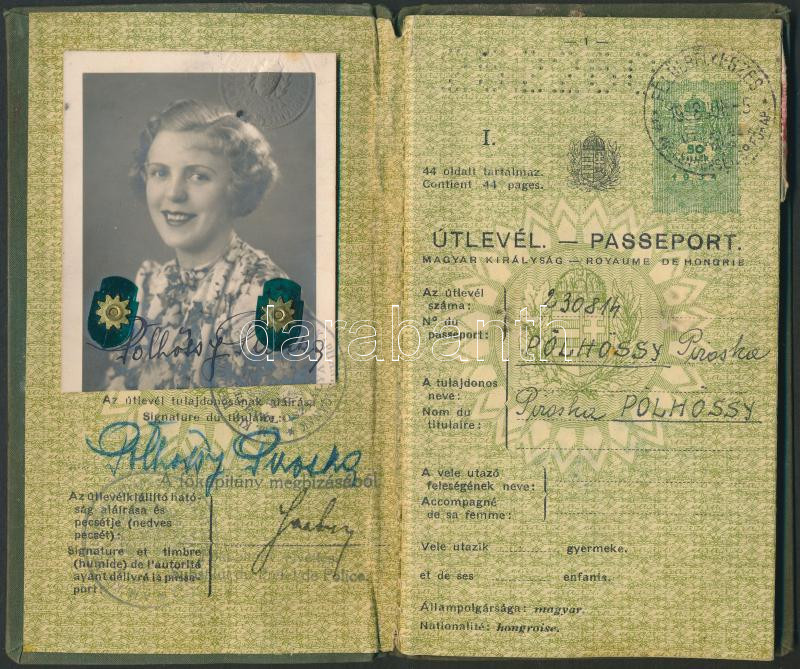 Pölhössy Piroska
Az útlevél tulajdonosának aláírása
Signature du titulaire:
Pölhössy Piroska
A főkapitány megbízásából
Az útlevélkiállító ható-
ság aláírása és
pecsétje (nedves
pecsét):
Signature et timbre
(humide) de l'autorité
ayant délivré le passe-
port:
de Police.
— 1 —
I.
44 oldalt tartalmaz.
Contient 44 pages.
50
ÚTLEVÉL. — PASSEPORT.
MAGYAR KIRÁLYSÁG — ROYAUME DE HONGRIE
Az útlevél
száma:
No du
passeport:
230814
PÖLHÖSSY Piroska
A tulajdonos
neve:
Nom du
titulaire:
Piroska PÖLHÖSSY
A vele utazó
feleségének neve:
Accompagné
de sa femme:
Vele utazik gyermeke.
et de ses enfants.
Állampolgársága: magyar.
Nationalité: hongroise.
darabanth